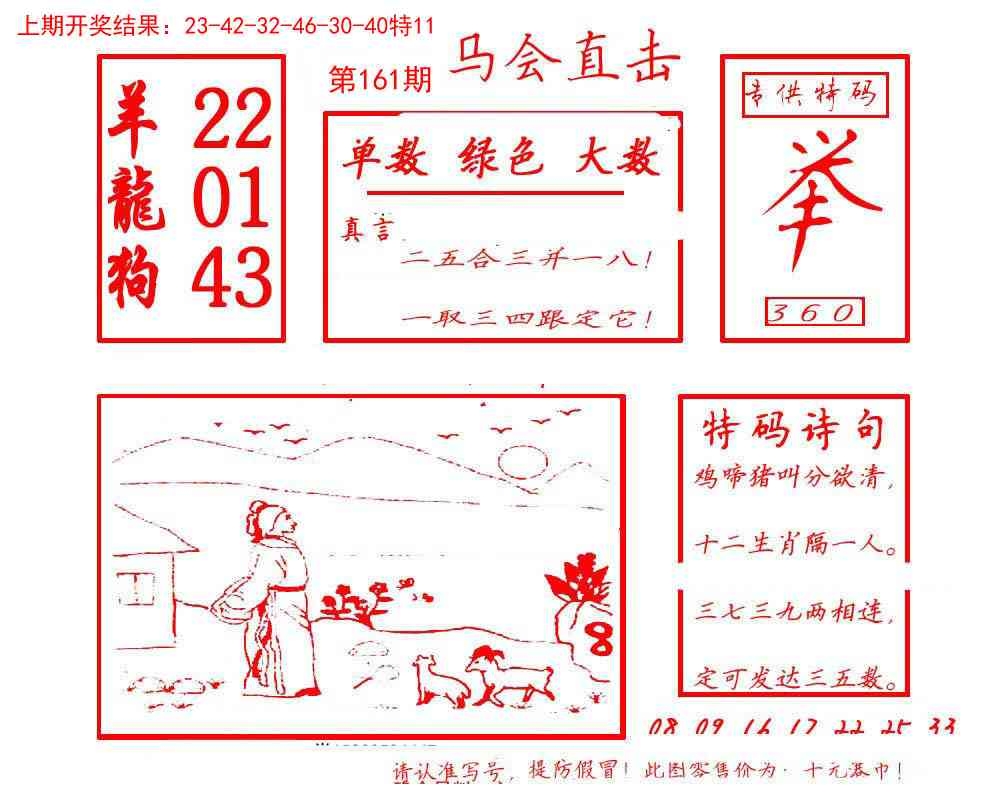 上期开奖结果：23-42-32-46-30-40特11
第161期 马会直击
羊 22
龍 01
狗 43
单数 绿色 大数
真言
二五合三并一八！
一取三四跟定它！
专供特码
举
360
8
特码诗句
鸡啼猪叫分欲清，
十二生肖隔一人。
三七三九两相连，
定可发达三五数。
08 09 16 17 22 25 33
请认准写号，提防假冒！此图零售价为·十元港巾！